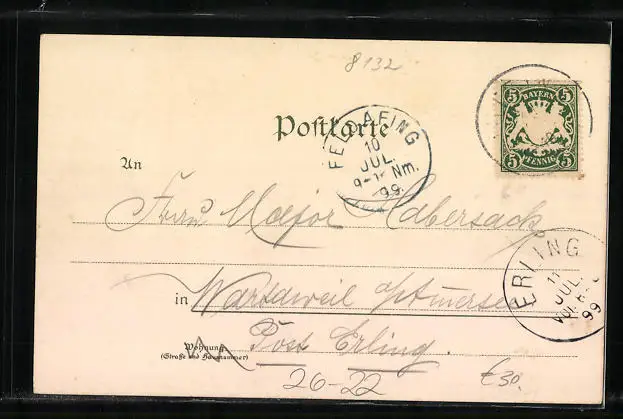 8132
Postkarte
FELDAFING
10
JUL.
Nm.
99
5 BAYERN 5
5 PFENNIG 5
An
Frau Major Habersack
ERLING
11
JUL.
VOR
99
in Wartaweil a/Ammersee
Wohnung
(Straße und Hausnummer)
Post Erling.
26-22
€30,